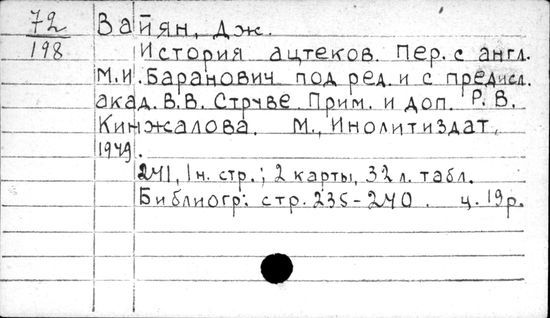 72 Вайян, Дж.
198 История ацтеков. Пер. с англ.
М.И. Баранович под ред. и с предисл.
акад. В.В. Струве. Прим. и доп. Р. В.
Кинжалова. М., Инолитиздат,
1949.
241, 1 н. стр.; 2 карты, 32 л. табл.
Библиогр: стр. 235-240. ц. 19 р.